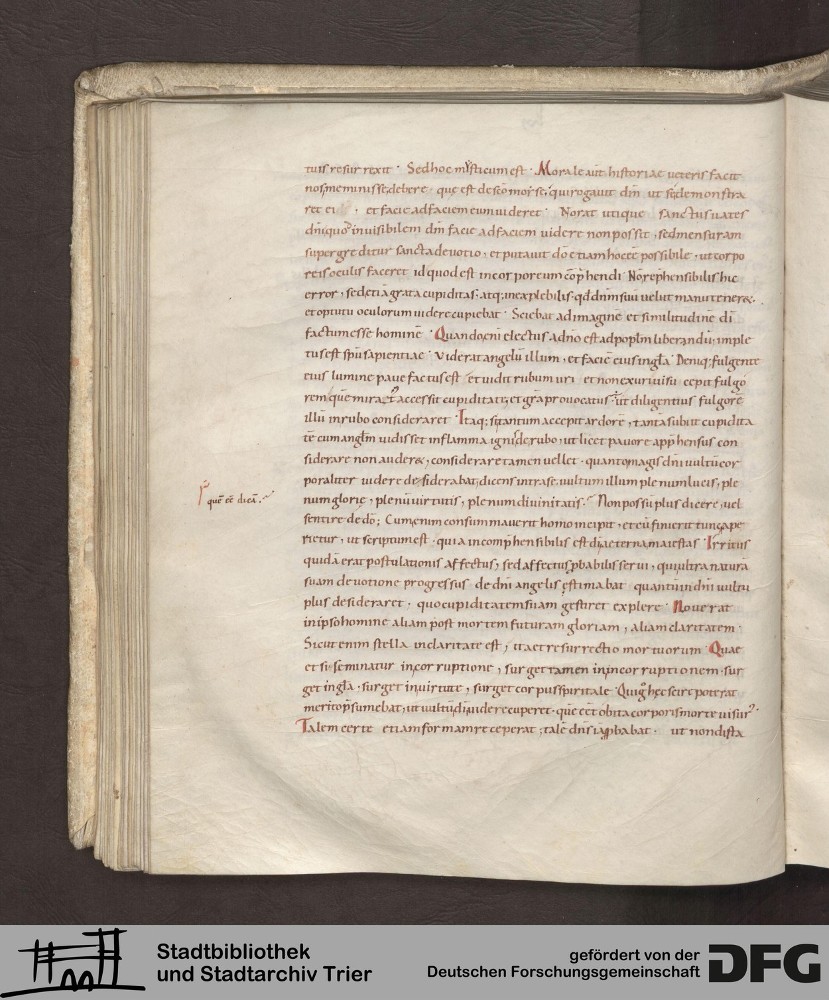 tuis resurrexit. Sed hoc mysticum est. Morale aut historiae ueteris facit
nos meminisse debere. que est de sco moise. qui rogauit dm ut se demonstra
ret ei, et facie ad faciem eum uideret. Norat utique sanctus uates
dni quo inuisibilem dm facie ad faciem uidere non possit, sed mensuram
supergreditur sancta deuotio, et putauit do etiam hoc ee possibile, ut corpo
reis oculis faceret id quod est incorporeum cophendi. N rephensibilis hic
error, sed etia grata cupiditas. atq; inexplebilis. qd dnm suu uelut manu teneret.
et optutu oculorum uidere cupiebat. Sciebat ad imagine et similitudine di
factum esse homine. Quando eni electus a dno est ad popln liberandu, imple
tus est spu sapientiae. Viderat angelu illum, et facie eius in gla. Deniq; fulgente
eius lumine pauefactus est, et uidit rubum uri et non exuri uisu cepit fulgo
rem que mira accessit cupiditati; et gra prouocatus ut diligentius fulgore
illu in rubo consideraret. Itaq; si tantum accepit ardore, tanta subiit cupidita
te cum anglm uidisset in flamma ignis de rubo, ut licet pauore apphensus con
siderare non auderet, considerare tamen uellet. quanto magis dni uultu cor
poraliter uidere desiderabat, dicens intra se. uultum illum plenum lucis, ple
num glorie, plenu uirtutis, plenum diuinitatis. Non possu plus dicere, uel
sentire de do; Cum enim consummauerit homo incipit, et cu finierit tunc ape
rietur, ut scriptum est. quia incomphensibilis est di aeterna maiestas. Irritus
quidă erat postulationis affectus, sed affectus pbabilis serui, qui ultra natura
suam deuotione progressus de dni angelis estimabat quantu in dni uultu
plus desideraret, quo cupiditatem suam gestiret explere. Nouerat
in ipso homine aliam post mortem futuram gloriam, aliam claritatem.
Sicut enim stella in claritate est, ita et resurrectio mortuorum. Quae
et si seminatur in corruptione, surget tamen in incorruptionem. sur
get in gla. surget in uirtute, surget corpus spiritale. Qui g hec scire poterat
merito psumebat, ut uultu di uidere cuperet. que eet obita corporis morte uisur.
Talem certe etiam formam receperat; tale dns ia pbabat. ut non dista
que ee dica.
Stadtbibliothek
und Stadtarchiv Trier
gefördert von der
Deutschen Forschungsgemeinschaft
DFG